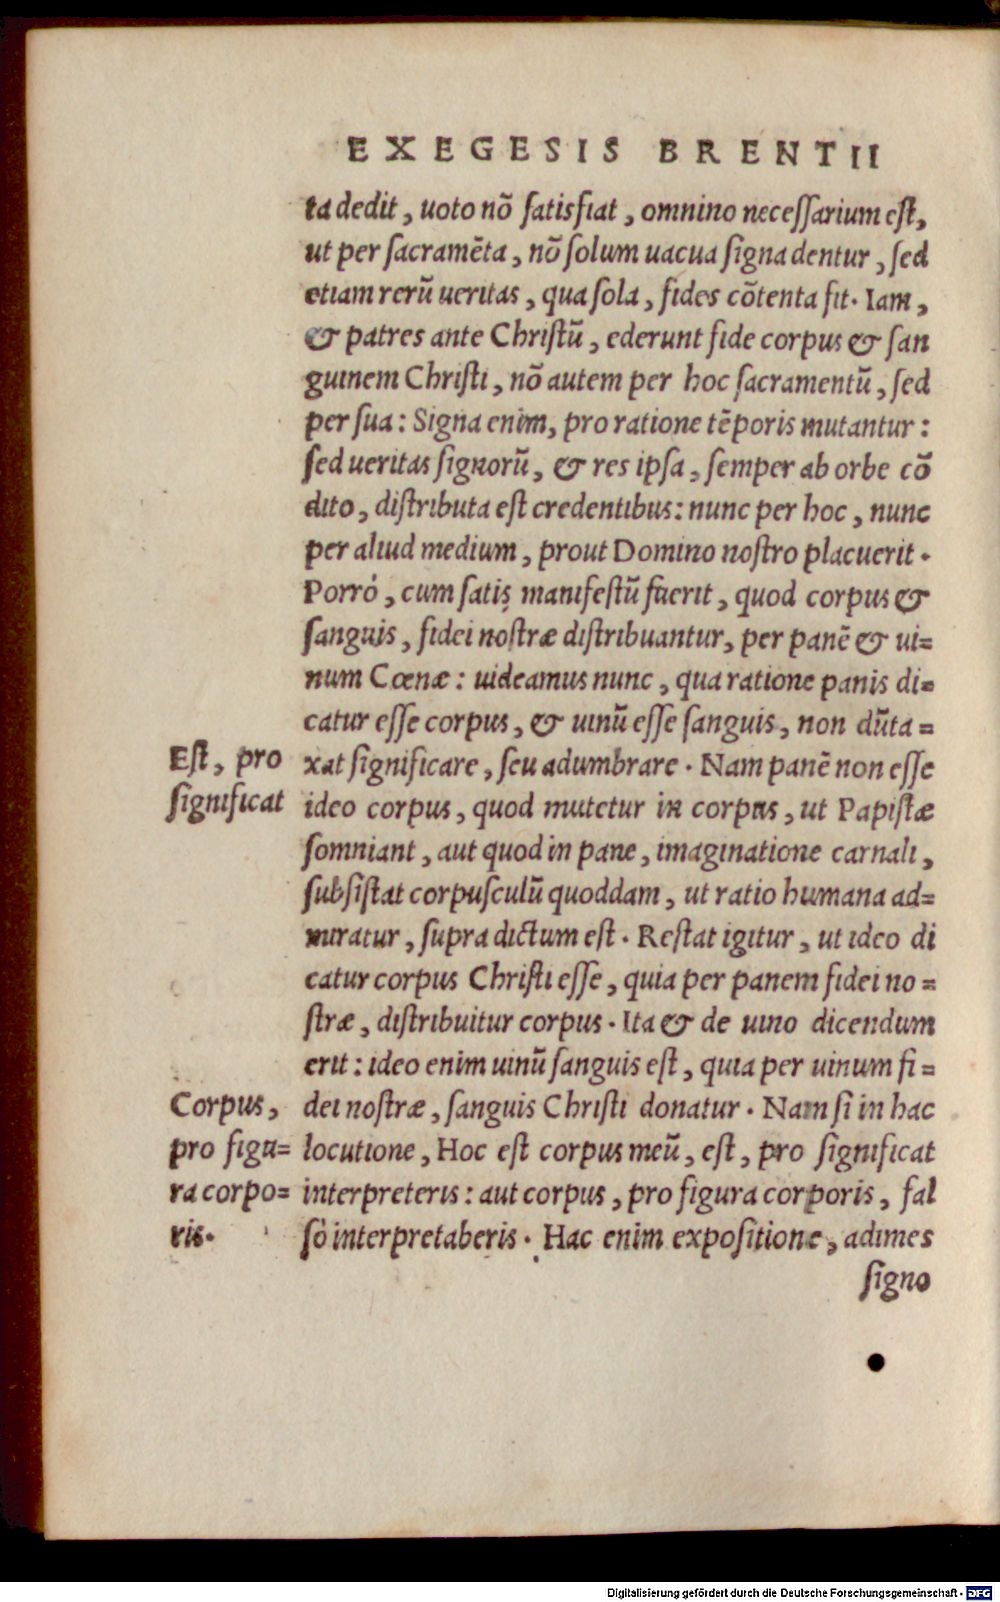 EXEGESIS BRENTII
ta dedit, uoto nõ satisfiat, omnino necessarium est,
ut per sacramẽta, nõ solum uacua signa dentur, sed
etiam rerũ ueritas, qua sola, fides cõtenta sit. Iam,
& patres ante Christũ, ederunt fide corpus & san
guinem Christi, nõ autem per hoc sacramentũ, sed
per sua: Signa enim, pro ratione tẽporis mutantur:
sed ueritas signorũ, & res ipsa, semper ab orbe cõ
dito, distributa est credentibus: nunc per hoc, nunc
per aliud medium, prout Domino nostro placuerit.
Porró, cum satis manifestũ fuerit, quod corpus &
sanguis, fidei nostræ distribuantur, per panẽ & ui=
num Cœnæ: uideamus nunc, qua ratione panis di=
catur esse corpus, & uinũ esse sanguis, non dũta=
Est, pro
significat
xat significare, seu adumbrare. Nam panẽ non esse
ideo corpus, quod mutetur in corpus, ut Papistæ
somniant, aut quod in pane, imaginatione carnali,
subsistat corpusculũ quoddam, ut ratio humana ad=
miratur, supra dictum est. Restat igitur, ut ideo di
catur corpus Christi esse, quia per panem fidei no=
stræ, distribuitur corpus. Ita & de uino dicendum
erit: ideo enim uinũ sanguis est, quia per uinum fi=
Corpus,
pro figu=
ra corpo=
ris.
dei nostræ, sanguis Christi donatur. Nam si in hac
locutione, Hoc est corpus meũ, est, pro significat
interpreteris: aut corpus, pro figura corporis, fal
sò interpretaberis. Hac enim expositione, adimes
signo
Digitalisierung gefördert durch die Deutsche Forschungsgemeinschaft - DFG